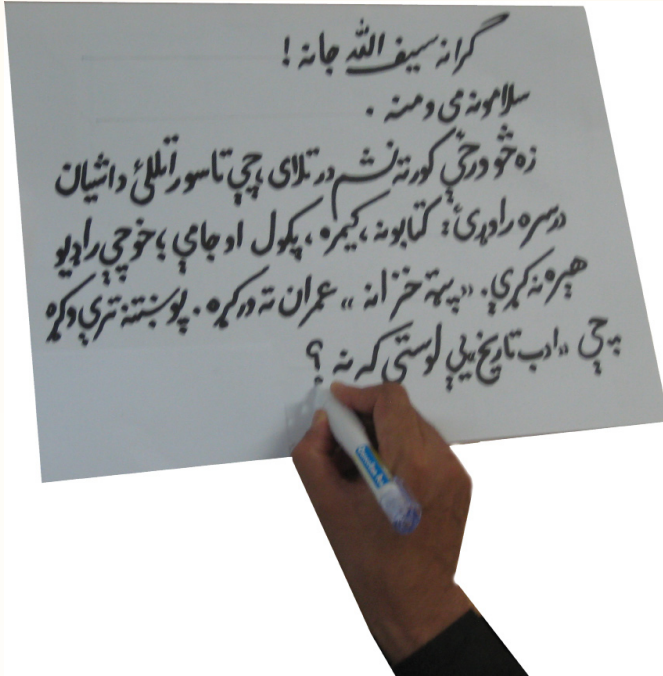 ګرانه سيف الله جانه !
سلامونه مې ومنه .
زه خو درځې کورته نشم درتلای ، چې تاسو راتللئ دا شيان
درسره راوړئ : کتابونه ، کېمره ، پکول او جامې ؛ خو چې راډيو
هېره نه کړې . «پټه خزانه» عمران ته ورکړه . پوښتنه ترې وکړه
چې «ادب تاريخ» يې لوستی که نه ؟